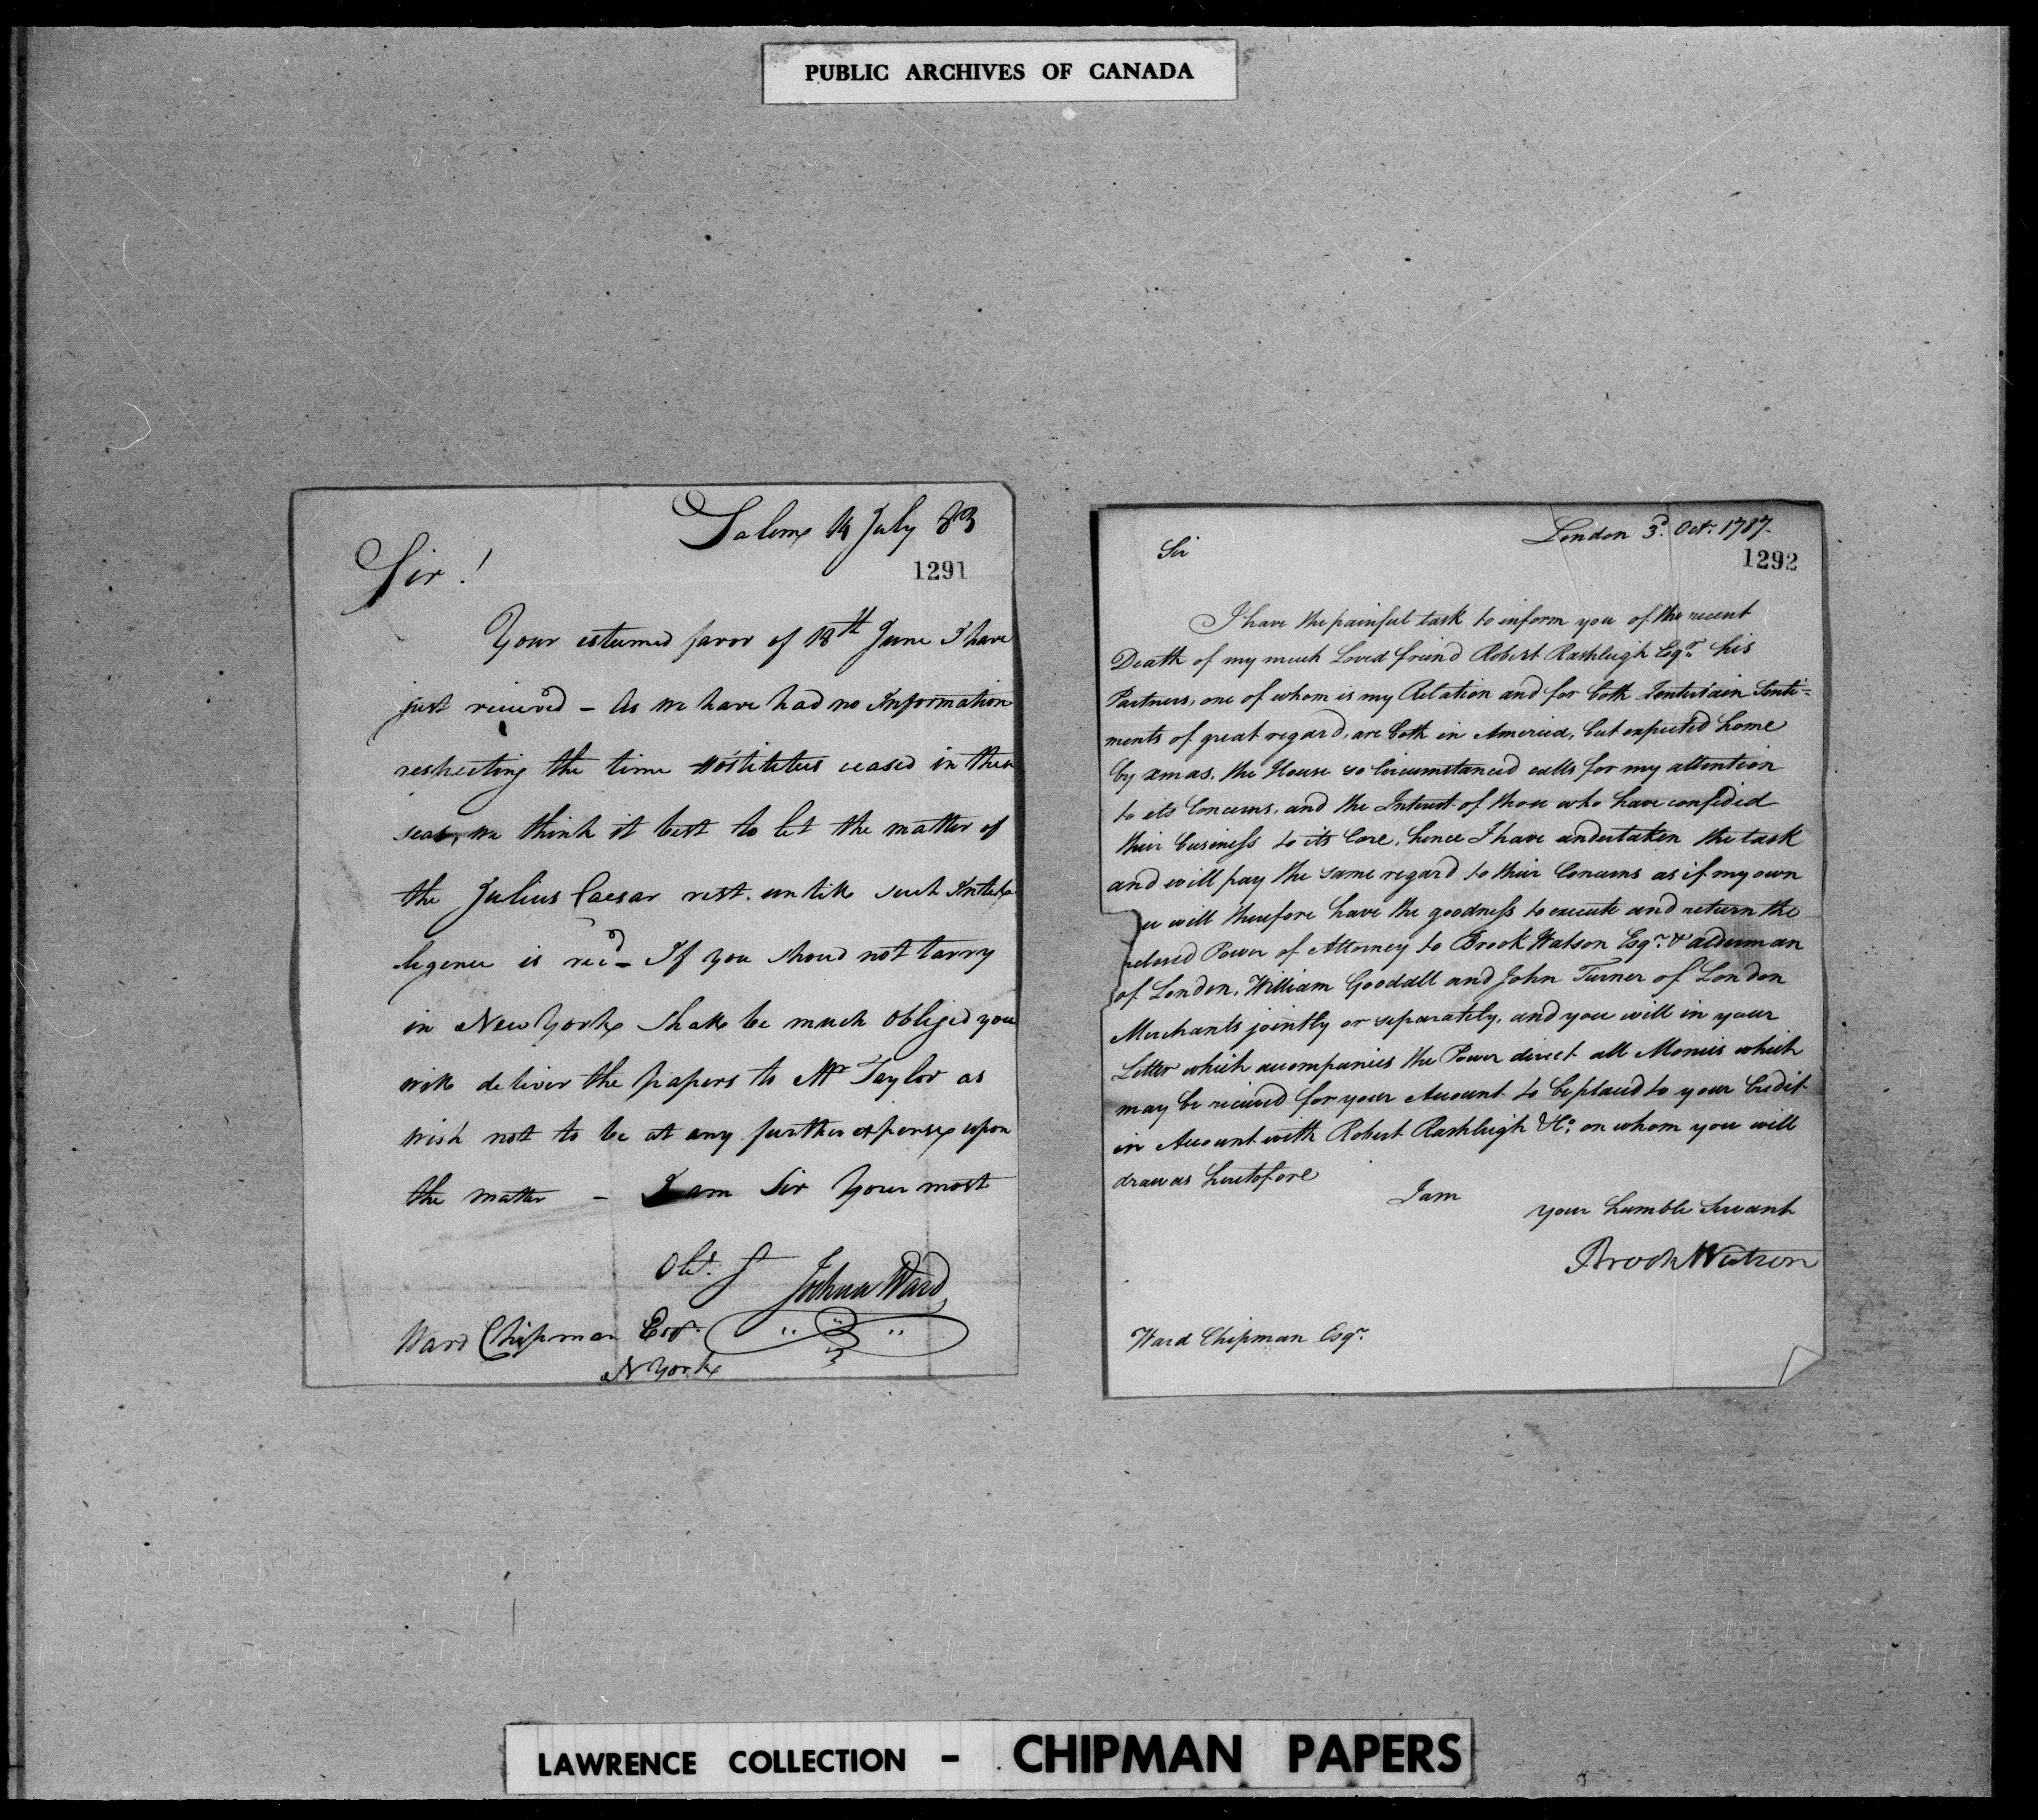 PUBLIC ARCHIVES OF CANADA
Salem 14 July 83
1291
Sir!
Your esteemed favor of 18th June I have
just recieved - As we have had no Information
respecting the time Hostilities ceased in these
seas, we think it best to let the matter of
the Julius Caesar rest. untill such Intel
ligence is recd - If you shoud not tarry
in New York shall be much obliged you
will deliver the papers to Mr Taylor as
wish not to be at any further expense upon
the matter - I am Sir Your most
Obt. St
Joshua Ward
Ward Chipman Esqr.
N York
London 3d. Octr. 1787.
1292
Sir
I have the painful task to inform you of the recent
Death of my much Loved friend Robert Rashleigh Esqr. his
Partners, one of whom is my Relation and for both I entertain Senti=
ments of great regard, are both in America, but expected home
by xmas. the House so Circumstanced calls for my attention
to its Concerns, and the Interest of those who have confided
their business to its Care, hence I have undertaken the task
and will pay the same regard to their Concerns as if my own
u will therefore have the goodness to execute and return the
nclosed Power of Attorney to Brook Watson Esqr. & alderman
of London, William Goodall and John Turner of London
Merchants jointly or separately, and you will in your
Letter which accompanies the Power direct all Monies which
may be received for your Account to be placed to your Credit
in Account with Robert Rashleigh & Co. on whom you will
draw as heretofore
I am
your humble Servant
Brook Watson
Ward Chipman Esqr.
LAWRENCE COLLECTION - CHIPMAN PAPERS